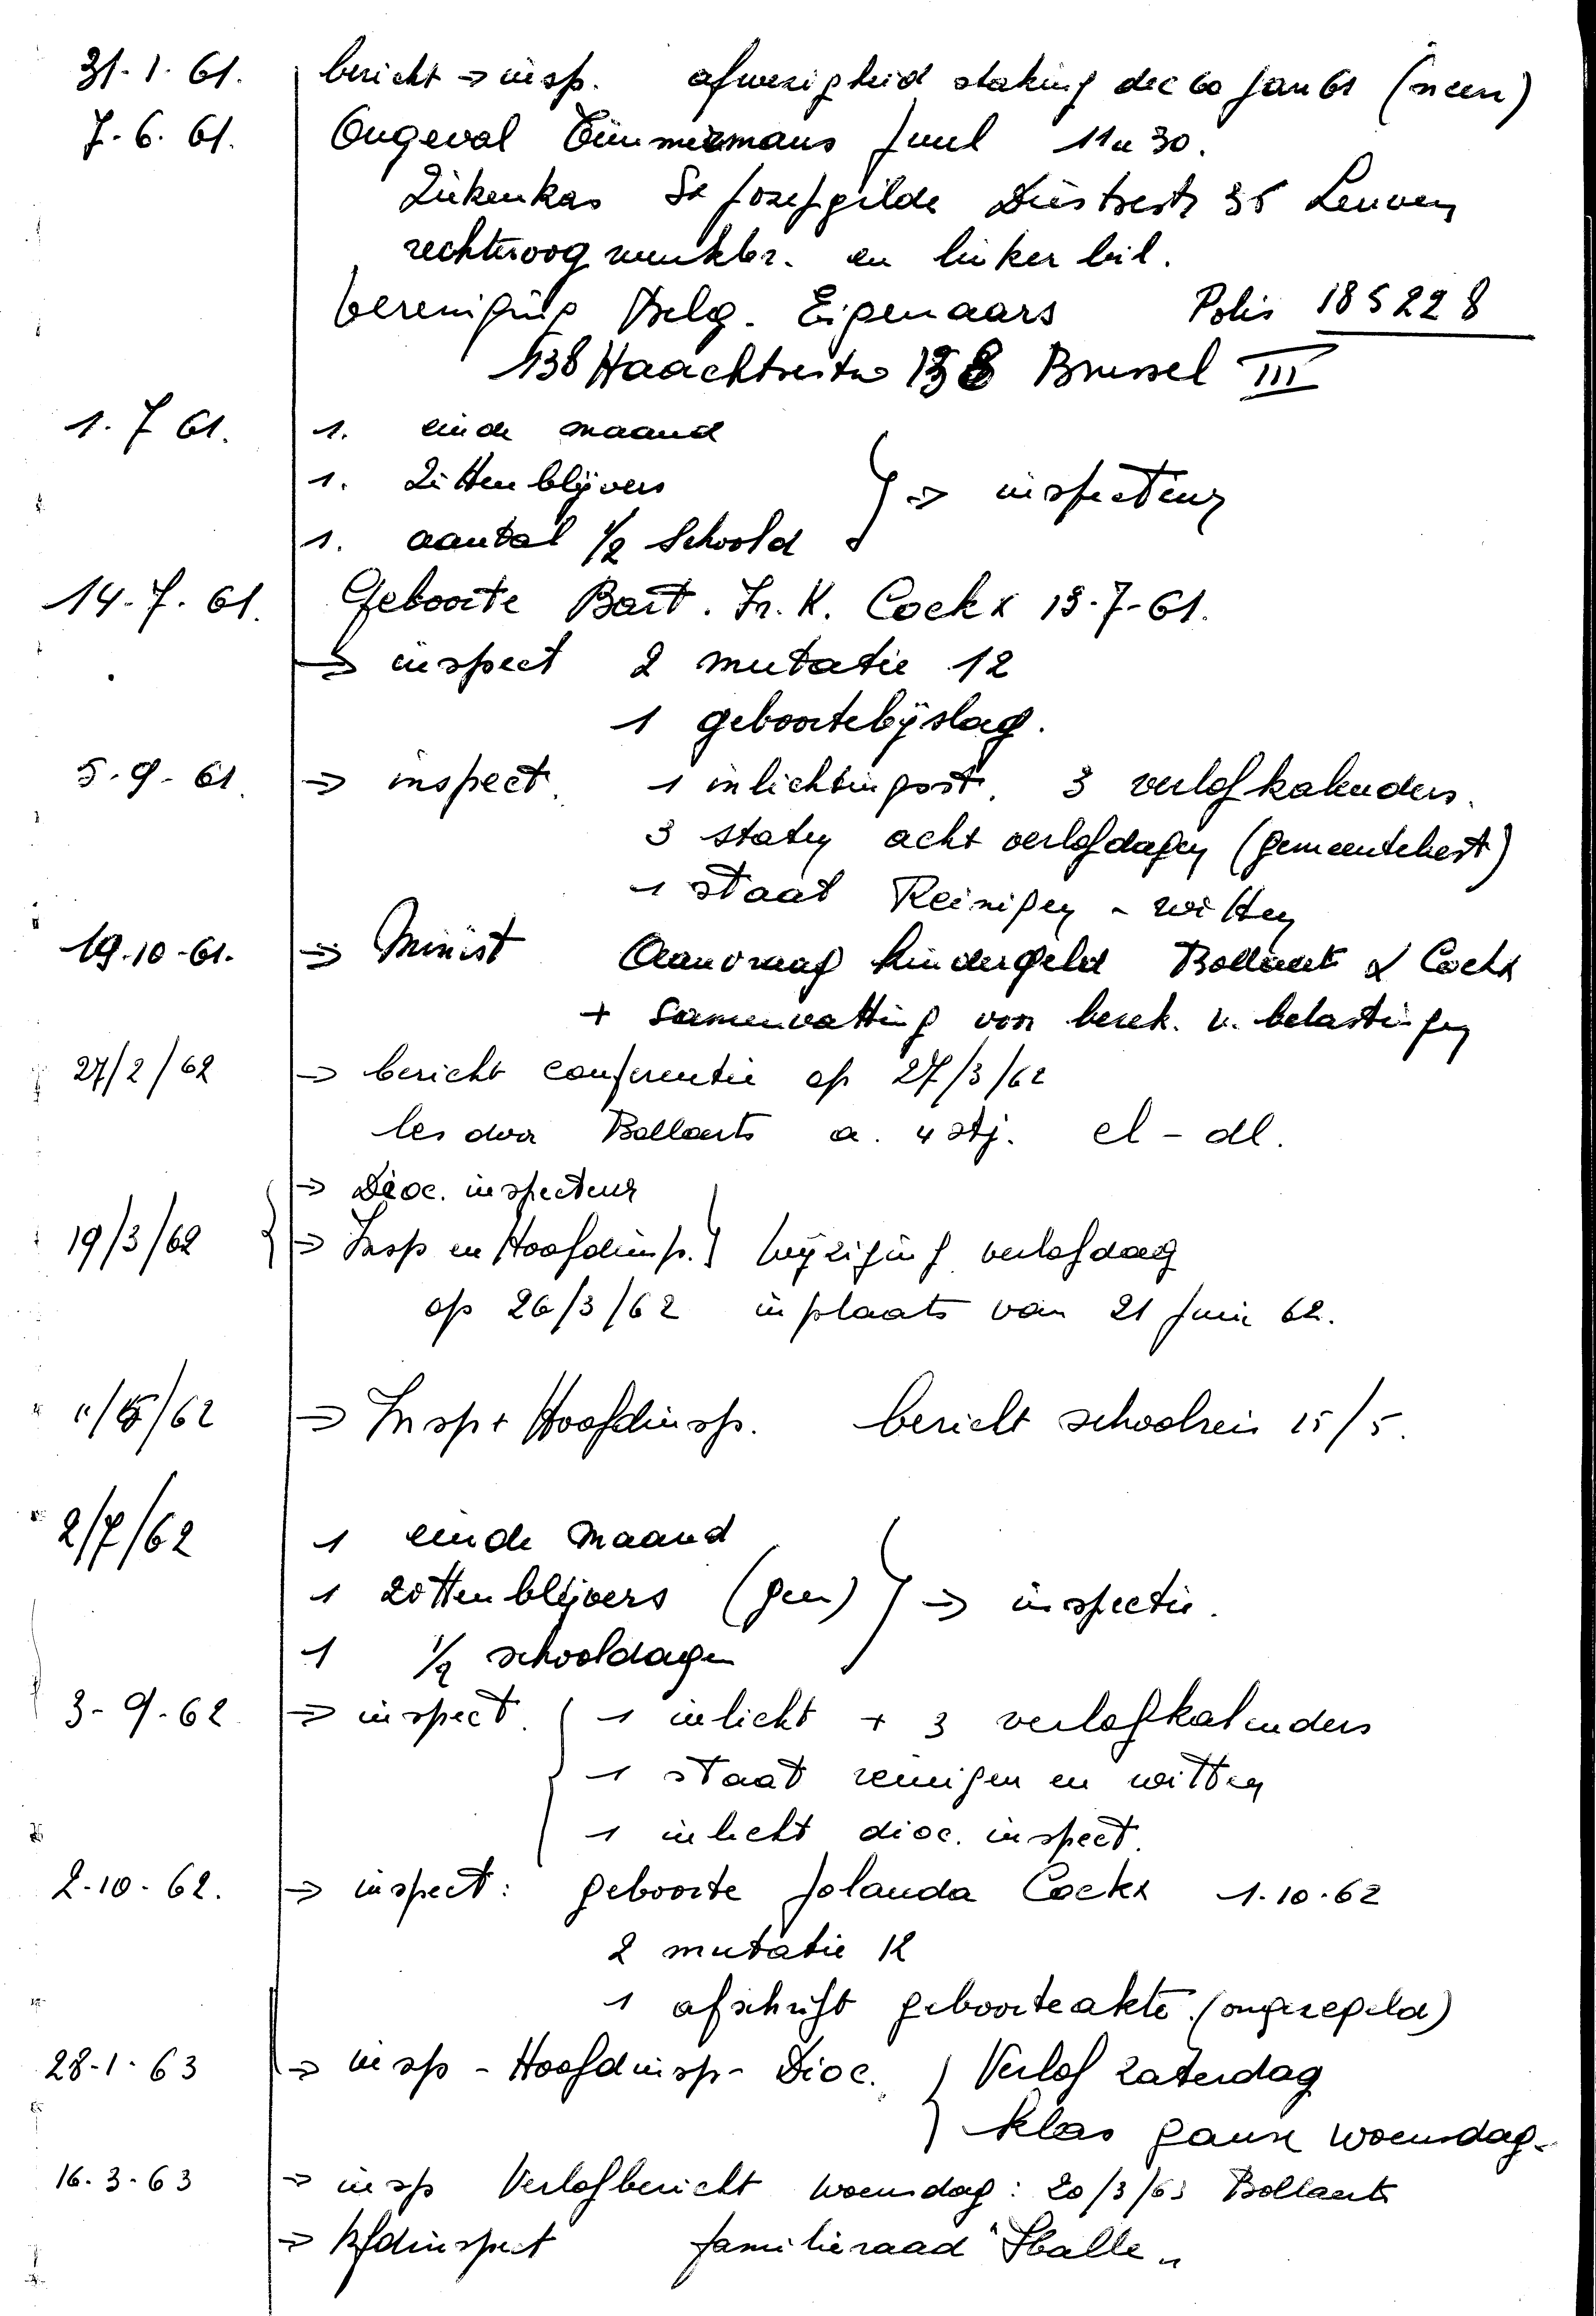 31-1-61. bericht → insp. afwezigheid staking dec 60 Jan 61 (neen)
7-6-61. Ongeval Timmermans Juul 11u30.
Ziekenkas St Jozefgilde Diestsestr 35 Leuven
rechteroog wenkbr. en linker bil.
Vereniging Belg. Eigenaars Polis 185228
138 Haachtsestw 138 Brussel III
1. 7 61. 1. einde maand
1. Zittenblijvers } → inspecteur
1. aantal 1/2 schoold
14-7-61. Geboorte Bart. Fr. K. Cockx 13-7-61.
→ inspect 2 mutatie 12
1 geboortebijslag.
5-9-61. → inspect. 1 inlichtingsst. 3 verlofkalenders.
3 staten acht verlofdagen (gemeentebest)
1 staat Reinigen - witten
19-10-61. → Minist Aanvraag kindergeld Bollaerts & Cockx
+ samenvatting van berek. v. belastingen
27/2/62 → bericht conferentie op 27/3/62
les door Bollaerts a. 4 stj. el - dl.
→ Dioc. inspecteur
19/3/62 { → Insp en Hoofdinsp. } wijziging verlofdag
op 26/3/62 in plaats van 21 Juni 62.
/5/62 → Insp + Hoofdinsp. bericht schoolreis 15/5.
2/7/62 1 einde maand
1 zittenblijvers (geen) } → inspectie.
1 1/2 schooldagen
3-9-62 → inspect. { 1 inlicht + 3 verlofkalenders
1 staat reinigen en witten
1 inlicht dioc. inspect.
2-10-62. → inspect: geboorte Jolanda Cockx 1.10.62
2 mutatie 12
1 afschrift geboorteakte (ongezegeld)
28-1-63 → insp - Hoofdinsp - Dioc. } Verlof zaterdag
klas ganse woensdag.
16.3.63 → insp Verlofbericht woensdag: 20/3/63 Bollaerts
→ hfdinspect familieraad "Halle"